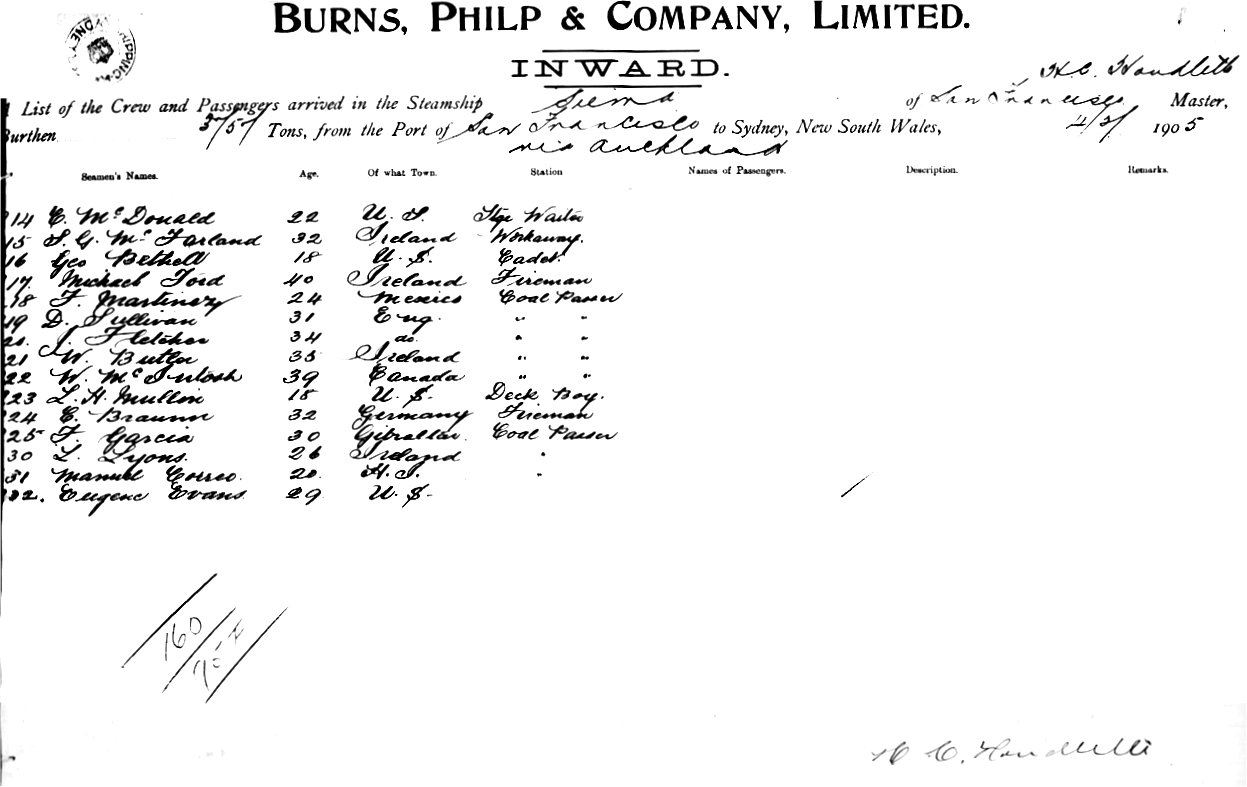 BURNS, PHILP & COMPANY, LIMITED.
INWARD.
List of the Crew and Passengers arrived in the Steamship Sierra of San Francisco, H.C. Houdlette Master,
Burthen Tons, from the Port of San Francisco to Sydney, New South Wales, 4/3/ 1905
via Auckland
Seamen's Names. Age. Of what Town. Station Names of Passengers. Description. Remarks.
14 E. McDonald 22 U.S. Stge Waiter
15 S.G. McFarland 32 Ireland Workaway.
16 Geo Bethell 18 U.S. Cadet
17 Michael Ford 40 Ireland Fireman
18 F. Martinez 24 Mexico Coal Passer
19 D. Sullivan 31 Eng. " "
20. J. Fletcher 34 do. " "
21 W. Butler 35 Ireland " "
22 W. McIntosh 39 Canada " "
23 L.H. Mullin 18 U.S. Deck Boy.
24 E. Braunn 32 Germany Fireman
25 F. Garcia 30 Gibraltar. Coal Passer
30 L. Lyons. 26 Ireland "
31 Manuel Correo. 20. H.I. "
32. Eugene Evans. 29 U.S.
160
H.C. Houdlette